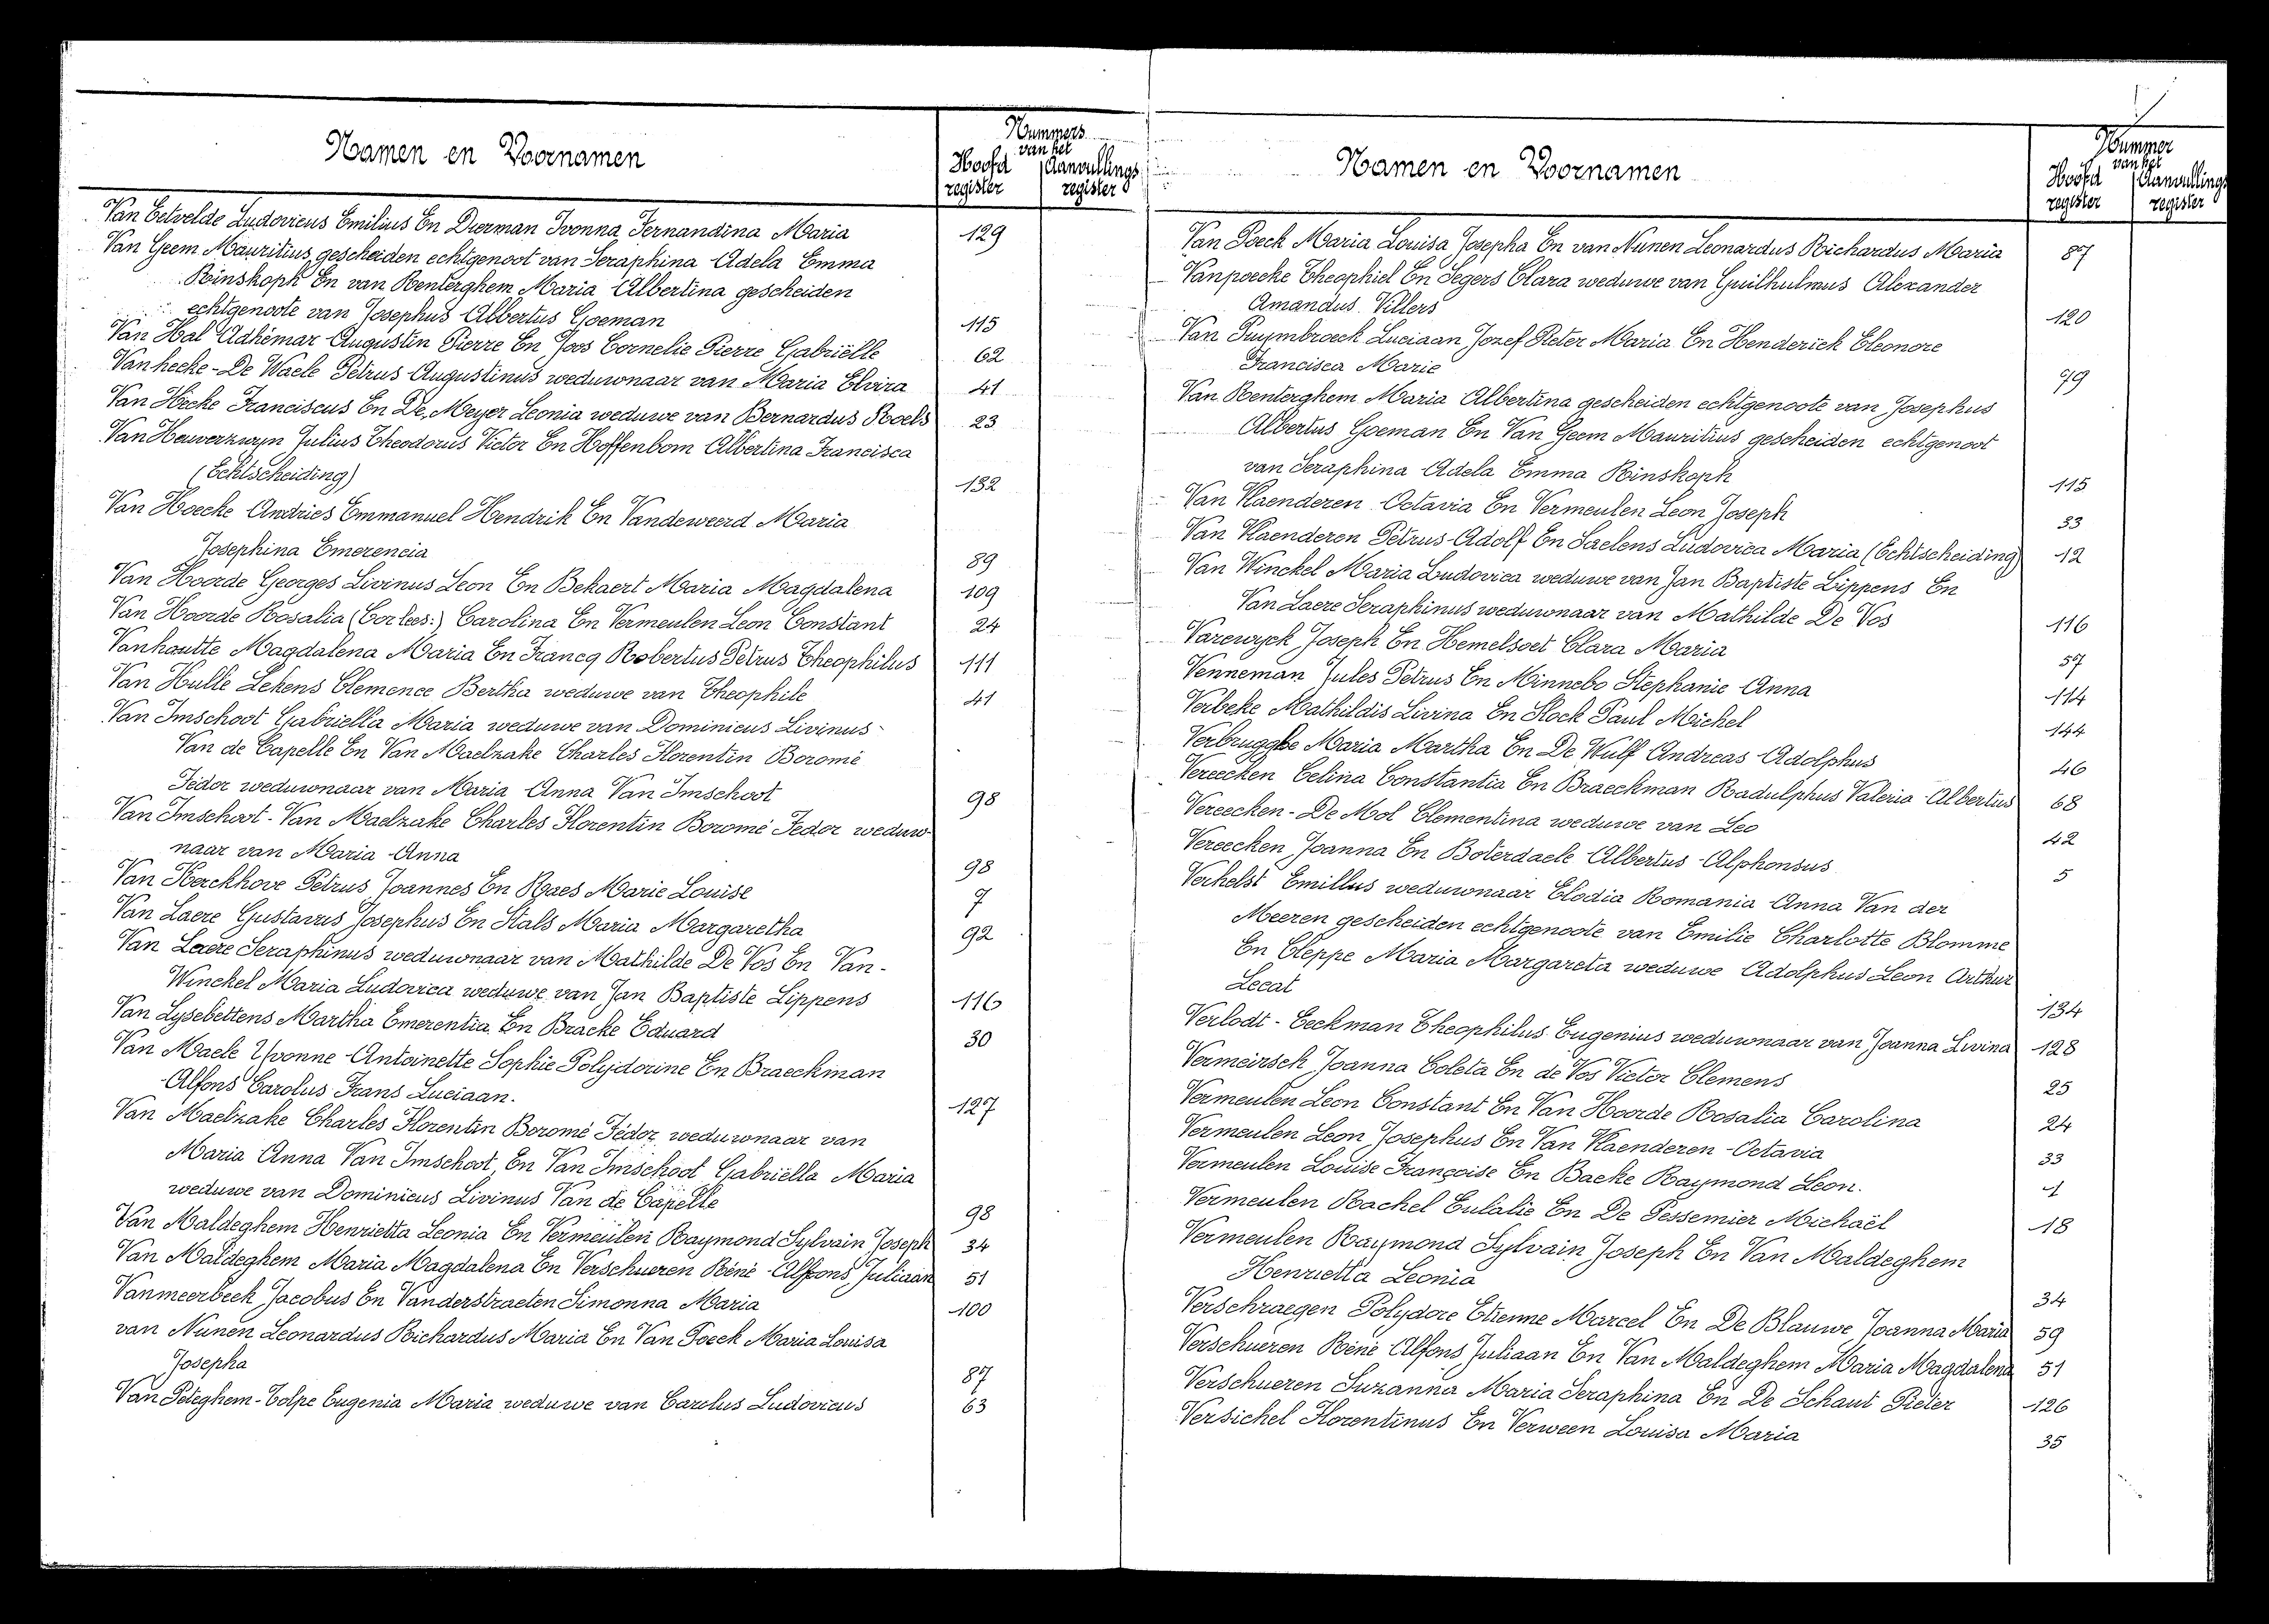 Namen en Voornamen
Nummers
van het
Hoofd register
Aanvullings register
Van Eetvelde Ludovicus Emilius En Dierman Ivonna Fernandina Maria 129
Van Geem Mauritius, gescheiden echtgenoot van Seraphina Adela Emma
Rinskoph En van Renterghem Maria Albertina gescheiden
echtgenoote van Josephus Albertus Goeman 115
Van Hal Adhémar Augustin Pierre En Joos Cornelie Pierre Gabriëlle 62
Vanhecke-De Waele Petrus Augustinus weduwnaar van Maria Elvira 41
Van Hecke Franciscus En De Meyer Leonia weduwe van Bernardus Roels 23
Van Heuverzwyn Julius Theodorus Victor En Hoffenbom Albertina Francisca
(Echtscheiding) 132
Van Hoecke Andries Emmanuel Hendrik En Vandeweerd Maria
Josephina Emerencia 89
Van Hoorde Georges Livinus Leon En Bekaert Maria Magdalena 109
Van Hoorde Rosalia (Cor lees:) Carolina En Vermeulen Leon Constant 24
Vanhoutte Magdalena Maria En Francq Robertus Petrus Theophilus 111
Van Hulle Lekens Clemence Bertha weduwe van Theophile 41
Van Imschoot Gabriella Maria weduwe van Dominicus Livinus
Van de Capelle En Van Maelzake Charles Florentin Boromé
Fédor weduwnaar van Maria Anna Van Imschoot 98
Van Imschoot-Van Maelzake Charles Florentin Boromé Fedor weduw-
naar van Maria Anna 98
Van Kerckhove Petrus Joannes En Raes Marie Louise 7
Van Laere Gustavus Josephus En Stals Maria Margaretha 92
Van Laere Seraphinus weduwnaar van Mathilde De Vos En Van-
Winckel Maria Ludovica weduwe van Jan Baptiste Lippens 116
Van Lysebettens Martha Emerentia En Bracke Eduard 30
Van Maele Yvonne Antoinette Sophie Polydorine En Braeckman
Alfons Carolus Frans Luciaan. 127
Van Maelzake Charles Florentin Boromé Fédor weduwnaar van
Maria Anna Van Imschoot, En Van Imschoot Gabriëlla Maria
weduwe van Dominicus Livinus Van de Capelle 98
Van Maldeghem Henrietta Leonia En Vermeulen Raymond Sylvain Joseph 34
Van Maldeghem Maria Magdalena En Verschueren Réné Alfons Juliaan 51
Vanmeerbeek Jacobus En Vanderstraeten Simonna Maria 100
van Nunen Leonardus Richardus Maria En Van Poeck Maria Louisa
Josepha 87
Van Peteghem-Tolpe Eugenia Maria weduwe van Carolus Ludovicus 63
Namen en Voornamen
Nummer
van het
Hoofd register
Aanvullings register
Van Poeck Maria Louisa Josepha En van Nunen Leonardus Richardus Maria 87
Vanpoecke Theophiel En Segers Clara weduwe van Guilhulmus Alexander
Amandus Villers 120
Van Puymbroeck Luciaan Jozef Pieter Maria En Henderick Eleonore
Francisca Marie 79
Van Renterghem Maria Albertina gescheiden echtgenoote van Josephus
Albertus Goeman En Van Geem Mauritius gescheiden echtgenoot
van Seraphina Adela Emma Rinskoph 115
Van Vlaenderen Octavia En Vermeulen Leon Joseph 33
Van Vlaenderen Petrus Adolf En Saelens Ludovica Maria (Echtscheiding) 12
Van Winckel Maria Ludovica weduwe van Jan Baptiste Lippens En
Van Laere Seraphinus weduwnaar van Mathilde De Vos 116
Varewyck Joseph En Hemelsoet Clara Maria 57
Venneman Jules Petrus En Minnebo Stephanie Anna 114
Verbeke Mathildis Livina En Slock Paul Michel 144
Verbrugghe Maria Martha En De Wulf Andreas Adolphus 46
Vereecken Celina Constantia En Braeckman Radulphus Valeria Albertus 68
Vereecken-De Mol Clementina weduwe van Leo 42
Vereecken Joanna En Boterdaele Albertus Alphonsus 5
Verhelst Emillus weduwnaar Elodia Romania Anna Van der
Meeren gescheiden echtgenoote van Emilie Charlotte Blomme
En Cleppe Maria Margareta weduwe Adolphus Leon Arthur
Lecat 134
Verlodt-Eeckman Theophilus Eugenius weduwnaar van Joanna Livina 128
Vermeirsch Joanna Coleta En de Vos Victor Clemens 25
Vermeulen Leon Constant En Van Hoorde Rosalia Carolina 24
Vermeulen Leon Josephus En Van Vlaenderen Octavia 33
Vermeulen Louise Françoise En Backe Raymond Leon. 1
Vermeulen Rachel Eulalie En De Pessemier Michaël 18
Vermeulen Raymond Sylvain Joseph En Van Maldeghem
Henrietta Leonia 34
Verschraegen Polydore Etienne Marcel En De Blauwe Joanna Maria 59
Verschueren Réné Alfons Juliaan En Van Maldeghem Maria Magdalena 51
Verschueren Suzanna Maria Seraphina En De Schaut Pieter 126
Versichel Florentinus En Verween Louisa Maria 35